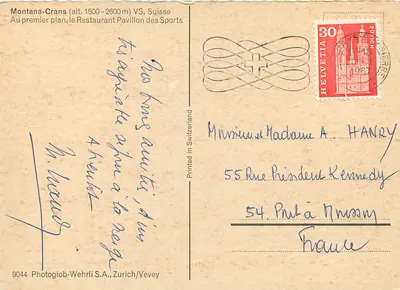 Montana-Crans (alt. 1500-2600 m) VS, Suisse
Au premier plan, le Restaurant Pavillon des Sports
Nos bons amitiés, d'un
très agréable séjour à la neige
A bientôt
9044 Photoglob-Wehrli S.A., Zurich/Vevey
Printed in Switzerland
HELVETIA
30
SIERRE
Monsieur Madame A. HANRY
55 Rue Président Kennedy
54. Pont à Mousson
France